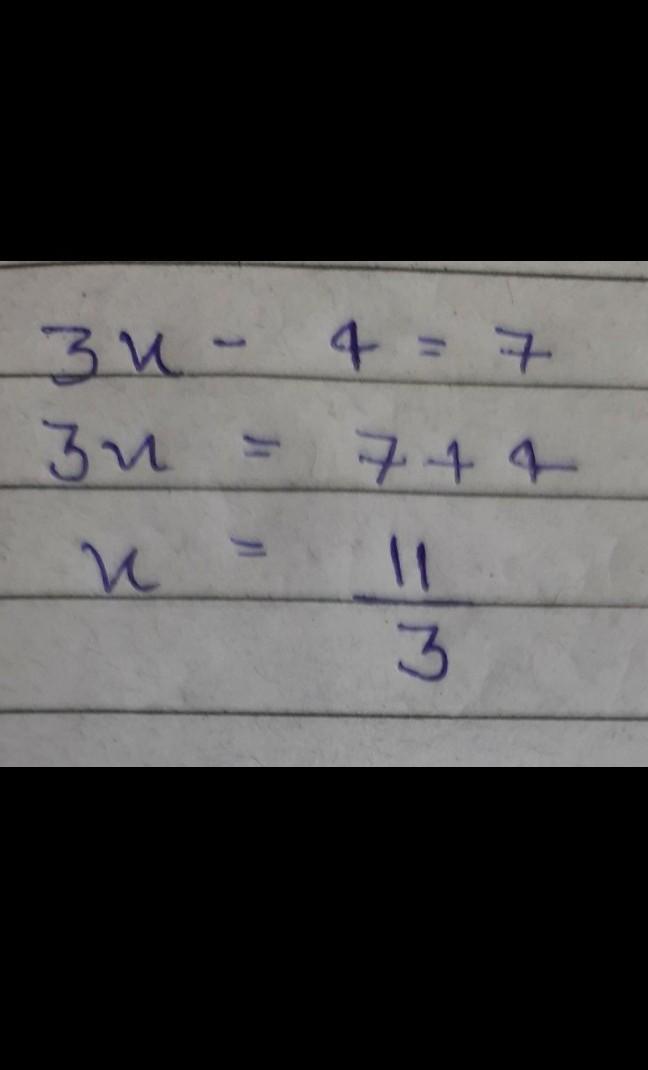 3x - 4 = 7
3x = 7 + 4
x = 11/3